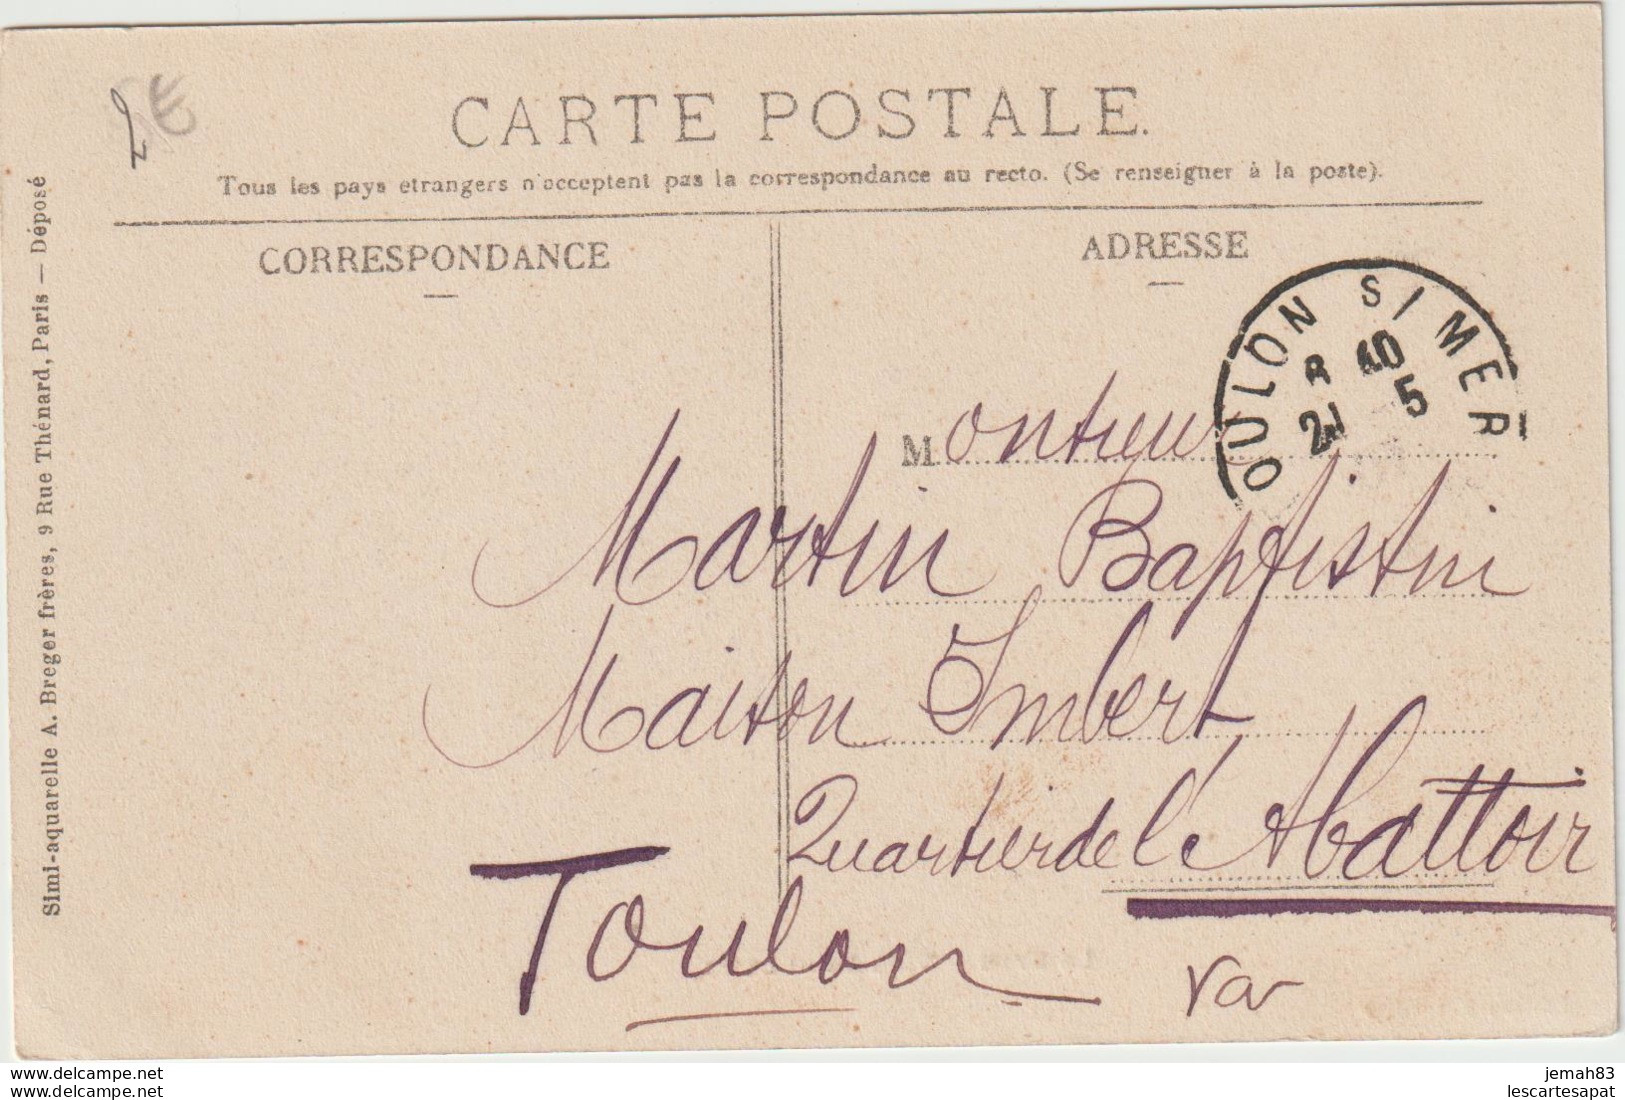 CARTE POSTALE.
Tous les pays etrangers n'acceptent pas la correspondance au recto. (Se renseigner à la poste).
CORRESPONDANCE
ADRESSE
OULON S/MER
21 5
Simi-aquarelle A. Breger frères, 9 Rue Thénard, Paris — Déposé
Martin Baptistin
Maison Imbert
Quartier de l'Abattoir
Toulon
Var
www.delcampe.net
www.delcampe.net
jemah83
lescartesapat